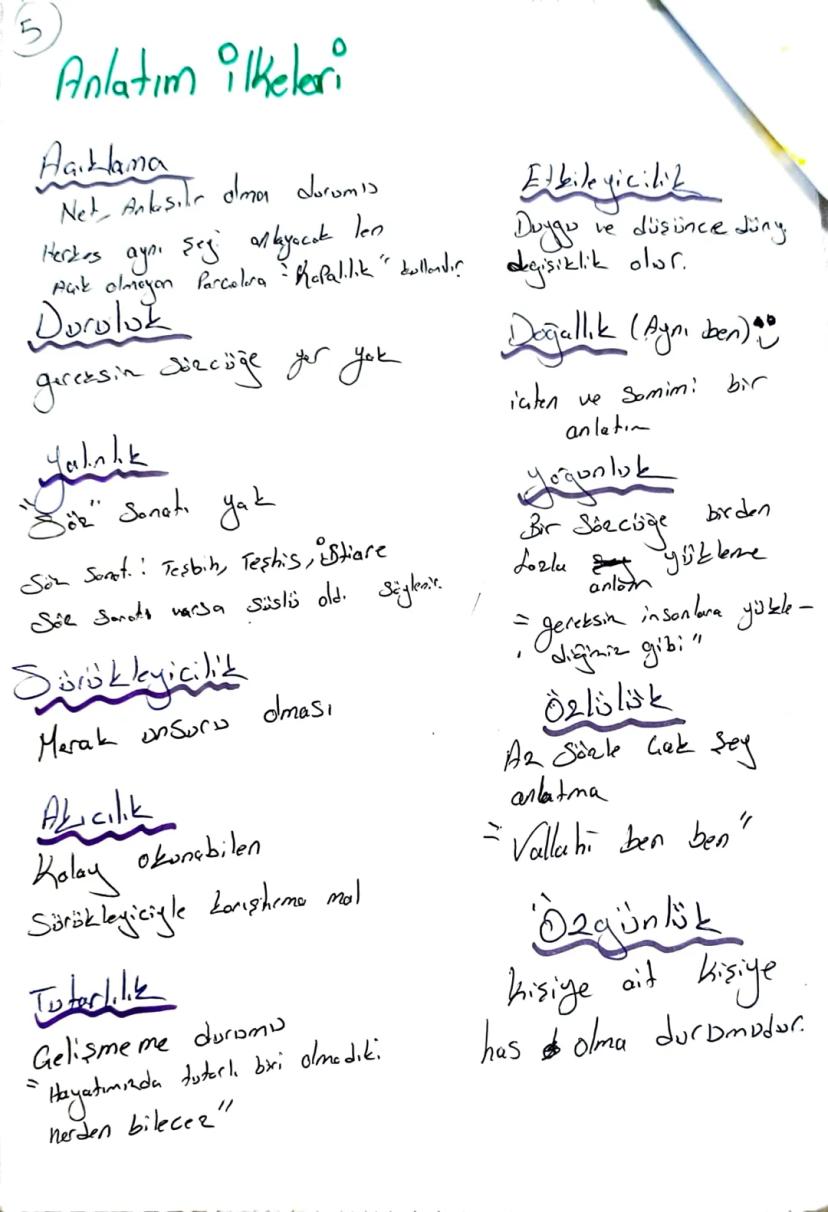 5
Anlatım ilkeleri
Açıklama
Net, Anlaşılr olma durumu
Herkes aynı şey anlayacak len
Açık olmayan Parçalara "Kapalılık" kullanılır
Duruluk
gereksin sözcüğe yer yok
Yalınlık
"Söz" Sanatı yok
Söz Sanatı: Teşbih, Teşhis, istiare
Söz Sanatı varsa süslü old. söylenir.
Sürükleyicilik
Merak unsuru olması
Akıcılık
Kolay okunabilen
Sürükleyiciyle karıştırma mal
Tutarlılık
Gelişmeme durumu
"Hayatımızda tutarlı biri olmadıki
nerden bilecez"
Etkileyicilik
Duygu ve düşünce düny.
değişiklik olur.
Doğallık (Aynı ben)
içten ve samimi bir
anlatım
Yoğunluk
Bir Sözcüğe birden
fazla anlam yükleme
"gereksin insanlara yükle-
diğimiz gibi"
Özlülük
Az Sözle çok şey
anlatma
"Vallahi ben ben"
Özgünlük
kişiye ait kişiye
has olma durumudur.